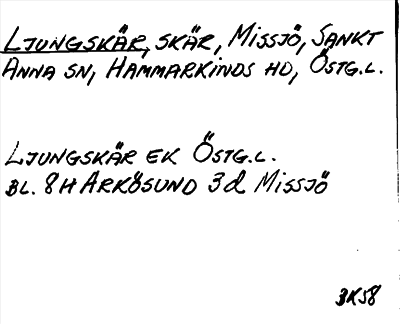 LJUNGSKÄR, SKÄR, MISSJÖ, SANKT
ANNA SN, HAMMARKINDS HD, ÖSTG.L.
LJUNGSKÄR EK ÖSTG.L.
BL. 8H ARKÖSUND 3d MISSJÖ
3K58